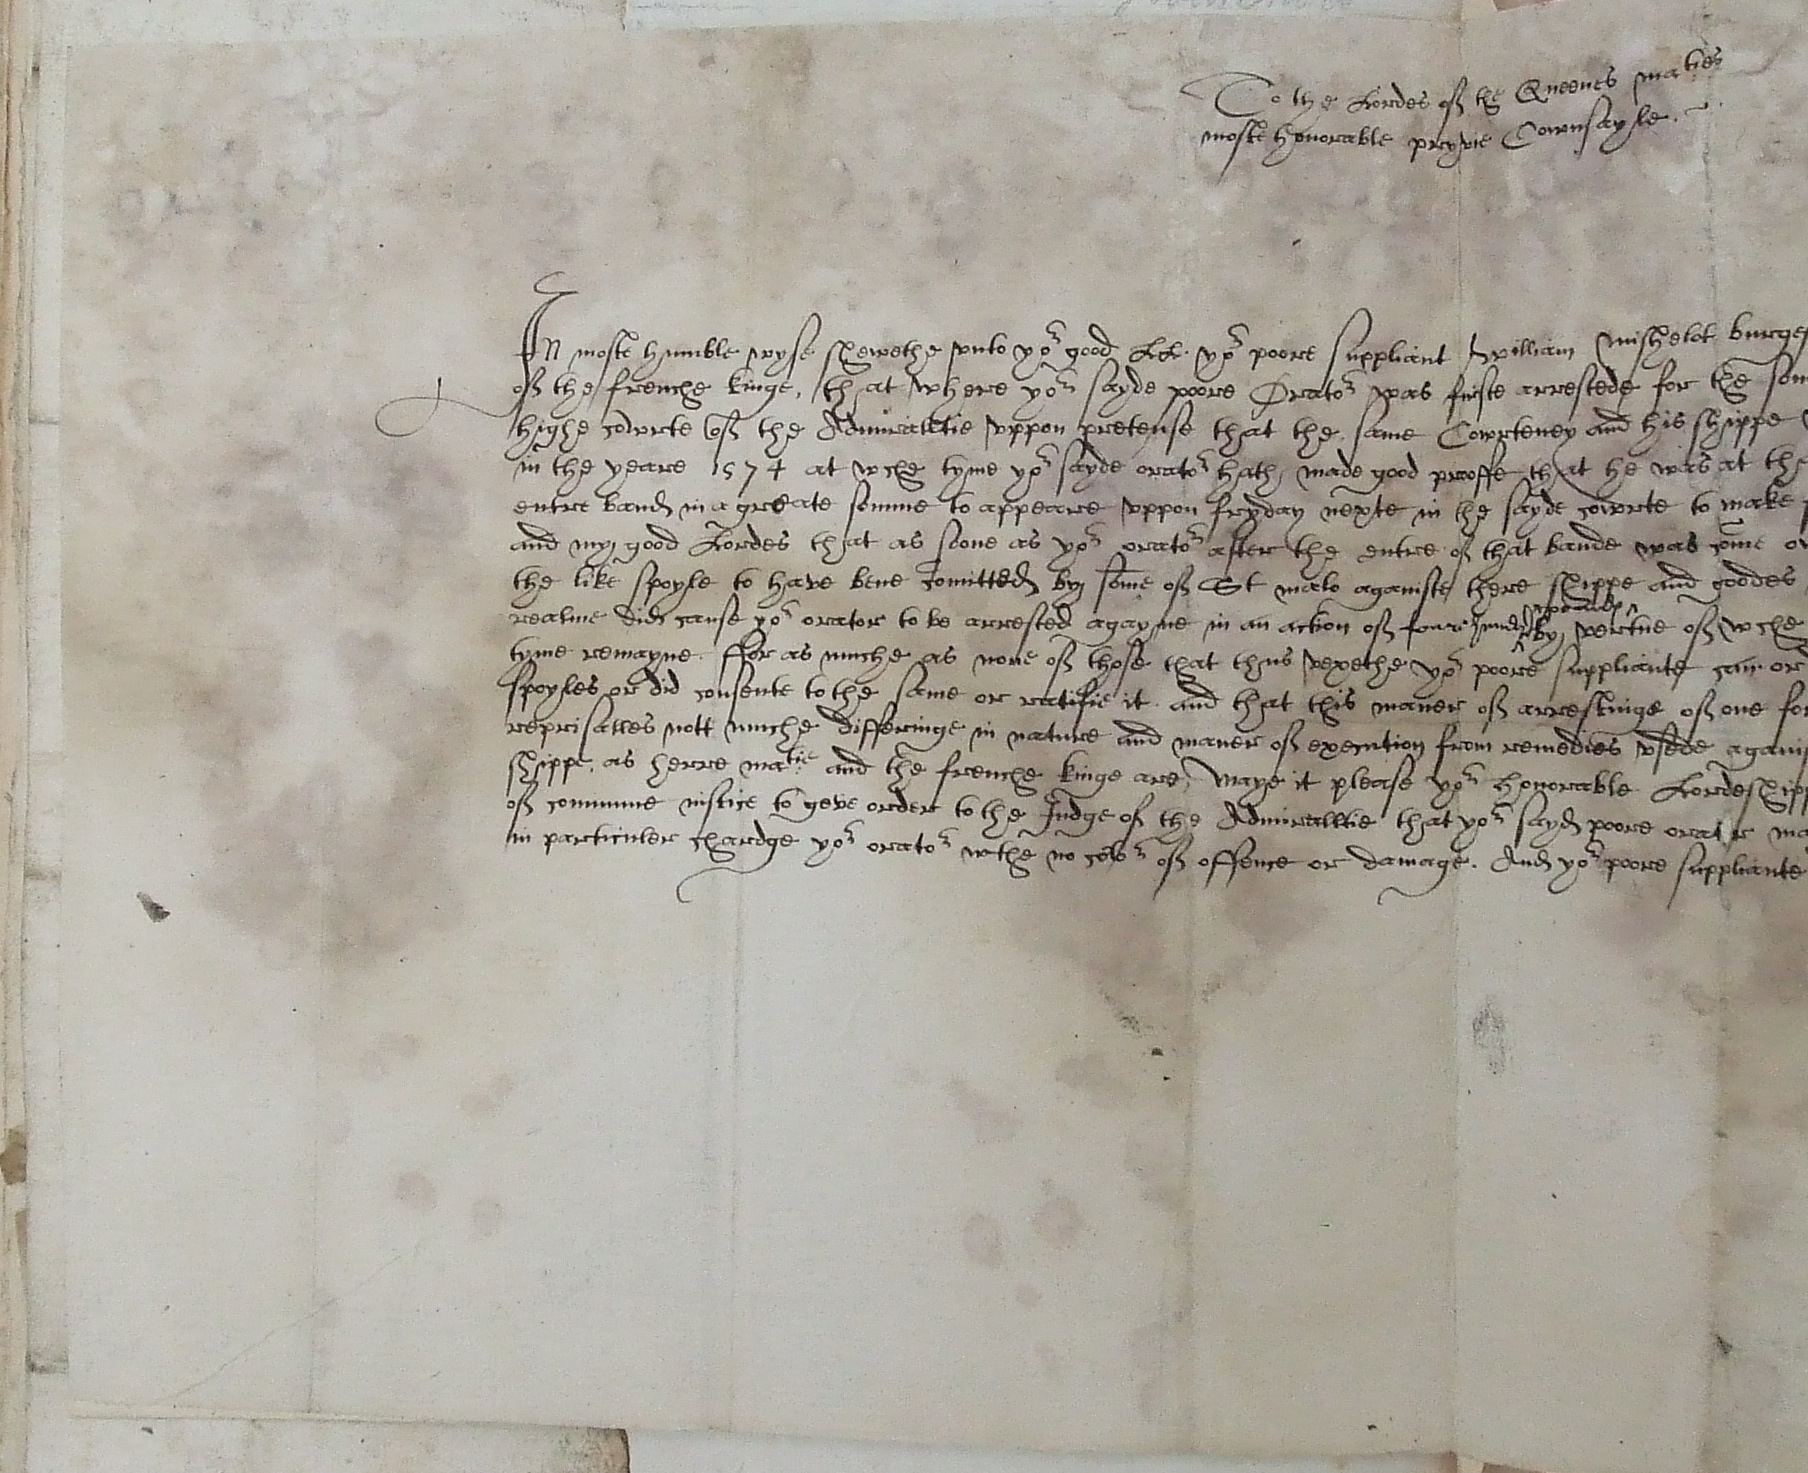 To the Lordes of the Queenes maties
moste honorable pryvie Cownsayle.
In moste humble wyse shewethe unto yor good LL. yor poore suppliant William Mishelot burges
of the frenche kinge, that where yor sayde poore Orator was firste arrestede for the som
highe cowrte of the Admiralltie uppon pretense that the same Cowrteney and his shippe
in the yeare 1574 at wche tyme yor sayde orator hath made good prooffe that he was at the
entre band in a greate somme to appeare uppon fryday nexte in the sayde cowrte to make
and my good Lordes that as soone as yor orator after the entre of that bande was come
the like spoyle to have bene comitted by some of St malo againste there shippe and goodes
realme did cause yor orator to be arrested agayne in an action of fowr hundred by vertue of wche
tyme remayne. Ffor as muche as none of those that thus vexethe yor poore suppliante can or
spoyles or did consente to the same or ratifie it and that this maner of arrestinge of one for
reprisalles nott muche differinge in nature and maner of execution from remedies usede
shippe, as herre matie and the frenche kinge are, Maye it please yor honorable Lordeshipp
of commune justice to geve order to the Judge of the Admiralltie that yor sayd poore orator
in particuler chardge yor orator wthe no color of offence or damage. And yor poore suppliante